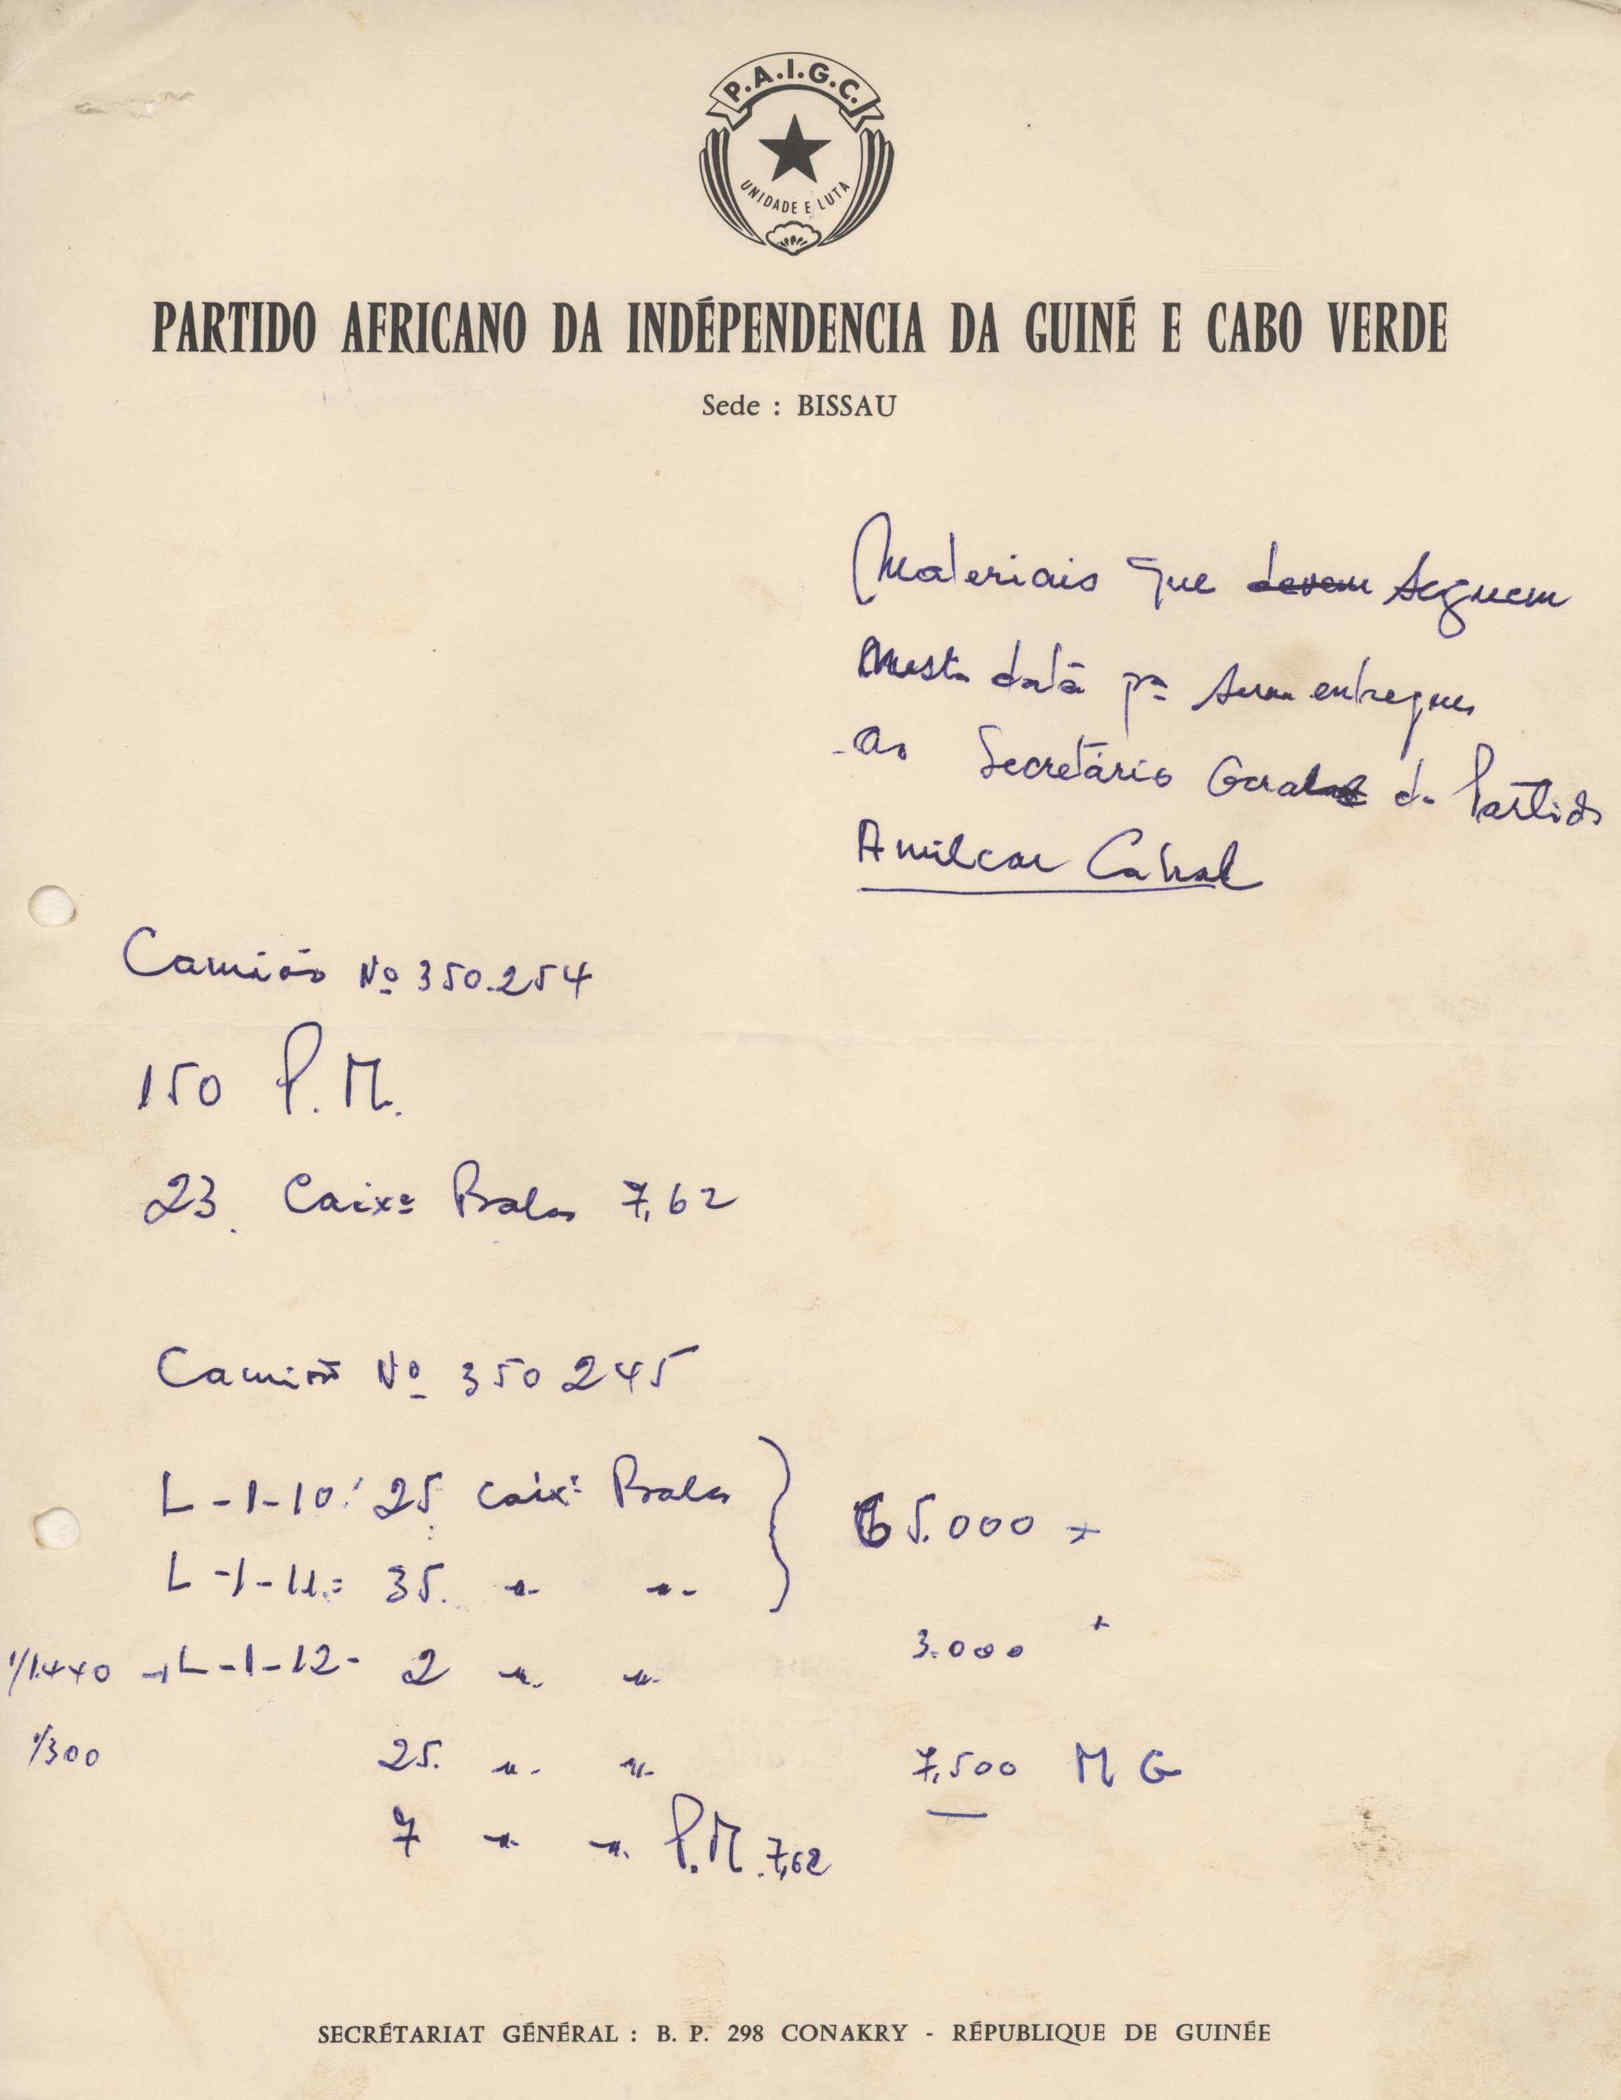 P.A.I.G.C.
UNIDADE E LUTA
PARTIDO AFRICANO DA INDÉPENDENCIA DA GUINÉ E CABO VERDE
Sede : BISSAU
Materiais que devem seguem
nesta data pª serem entregues
ao Secretário Geral do Partido
Amilcar Cabral
Camião Nº 350.254
150 P.M.
23 Caixas Balas 7,62
Camião Nº 350 245
L-1-10: 25 caixas Balas
L-1-11: 35. " " } 65.000 +
1/1440 → L-1-12- 2 " " 3.000 +
1/300 25. " " 7,500 M G
7 " " P.M. 7,62
SECRÉTARIAT GÉNÉRAL : B. P. 298 CONAKRY - RÉPUBLIQUE DE GUINÉE